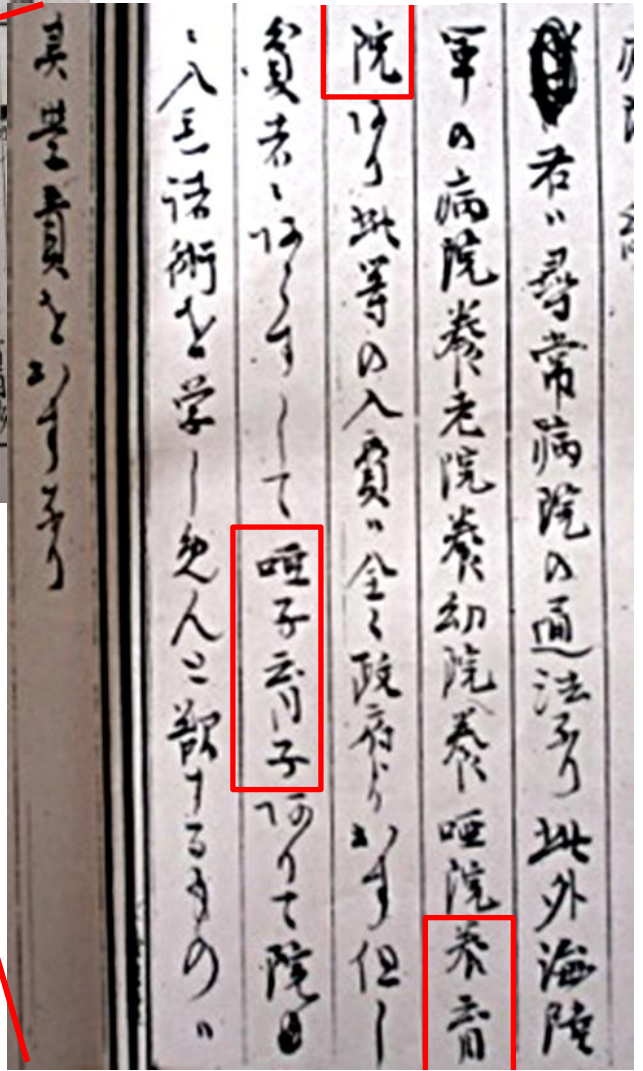 右ハ尋常病院の通法なり此外海陸
軍の病院養老院養幼院養唖院養盲
院あり此等の入費ハ全く政府より出す但し
貧者ニあらすして唖子盲子ありて院
ニ入レ諸術を学しめんと欲するものハ
其費を出すなり